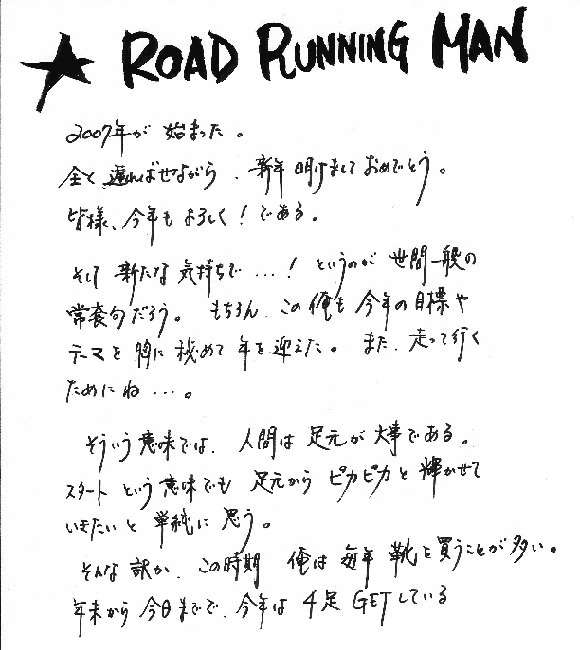 ★ ROAD RUNNING MAN
2007年が 始まった。
全く 遅ればせながら、新年 明けまして おめでとう。
皆様、今年も よろしく！である。
そして 新たな 気持ちで…！ というのが 世間一般の
常套句だろう。 もちろん、この俺も 今年の目標や
テーマを 胸に 秘めて 年を 迎えた。 また、走って行く
ためにね…。
そういう意味では、人間は 足元が 大事である。
スタート という 意味でも 足元から ピカピカと 輝かせて
いきたいと 単純に 思う。
そんな 訳か、この時期 俺は 毎年 靴を買うことが 多い。
年末から 今日までで、今年は 4足 GETしている